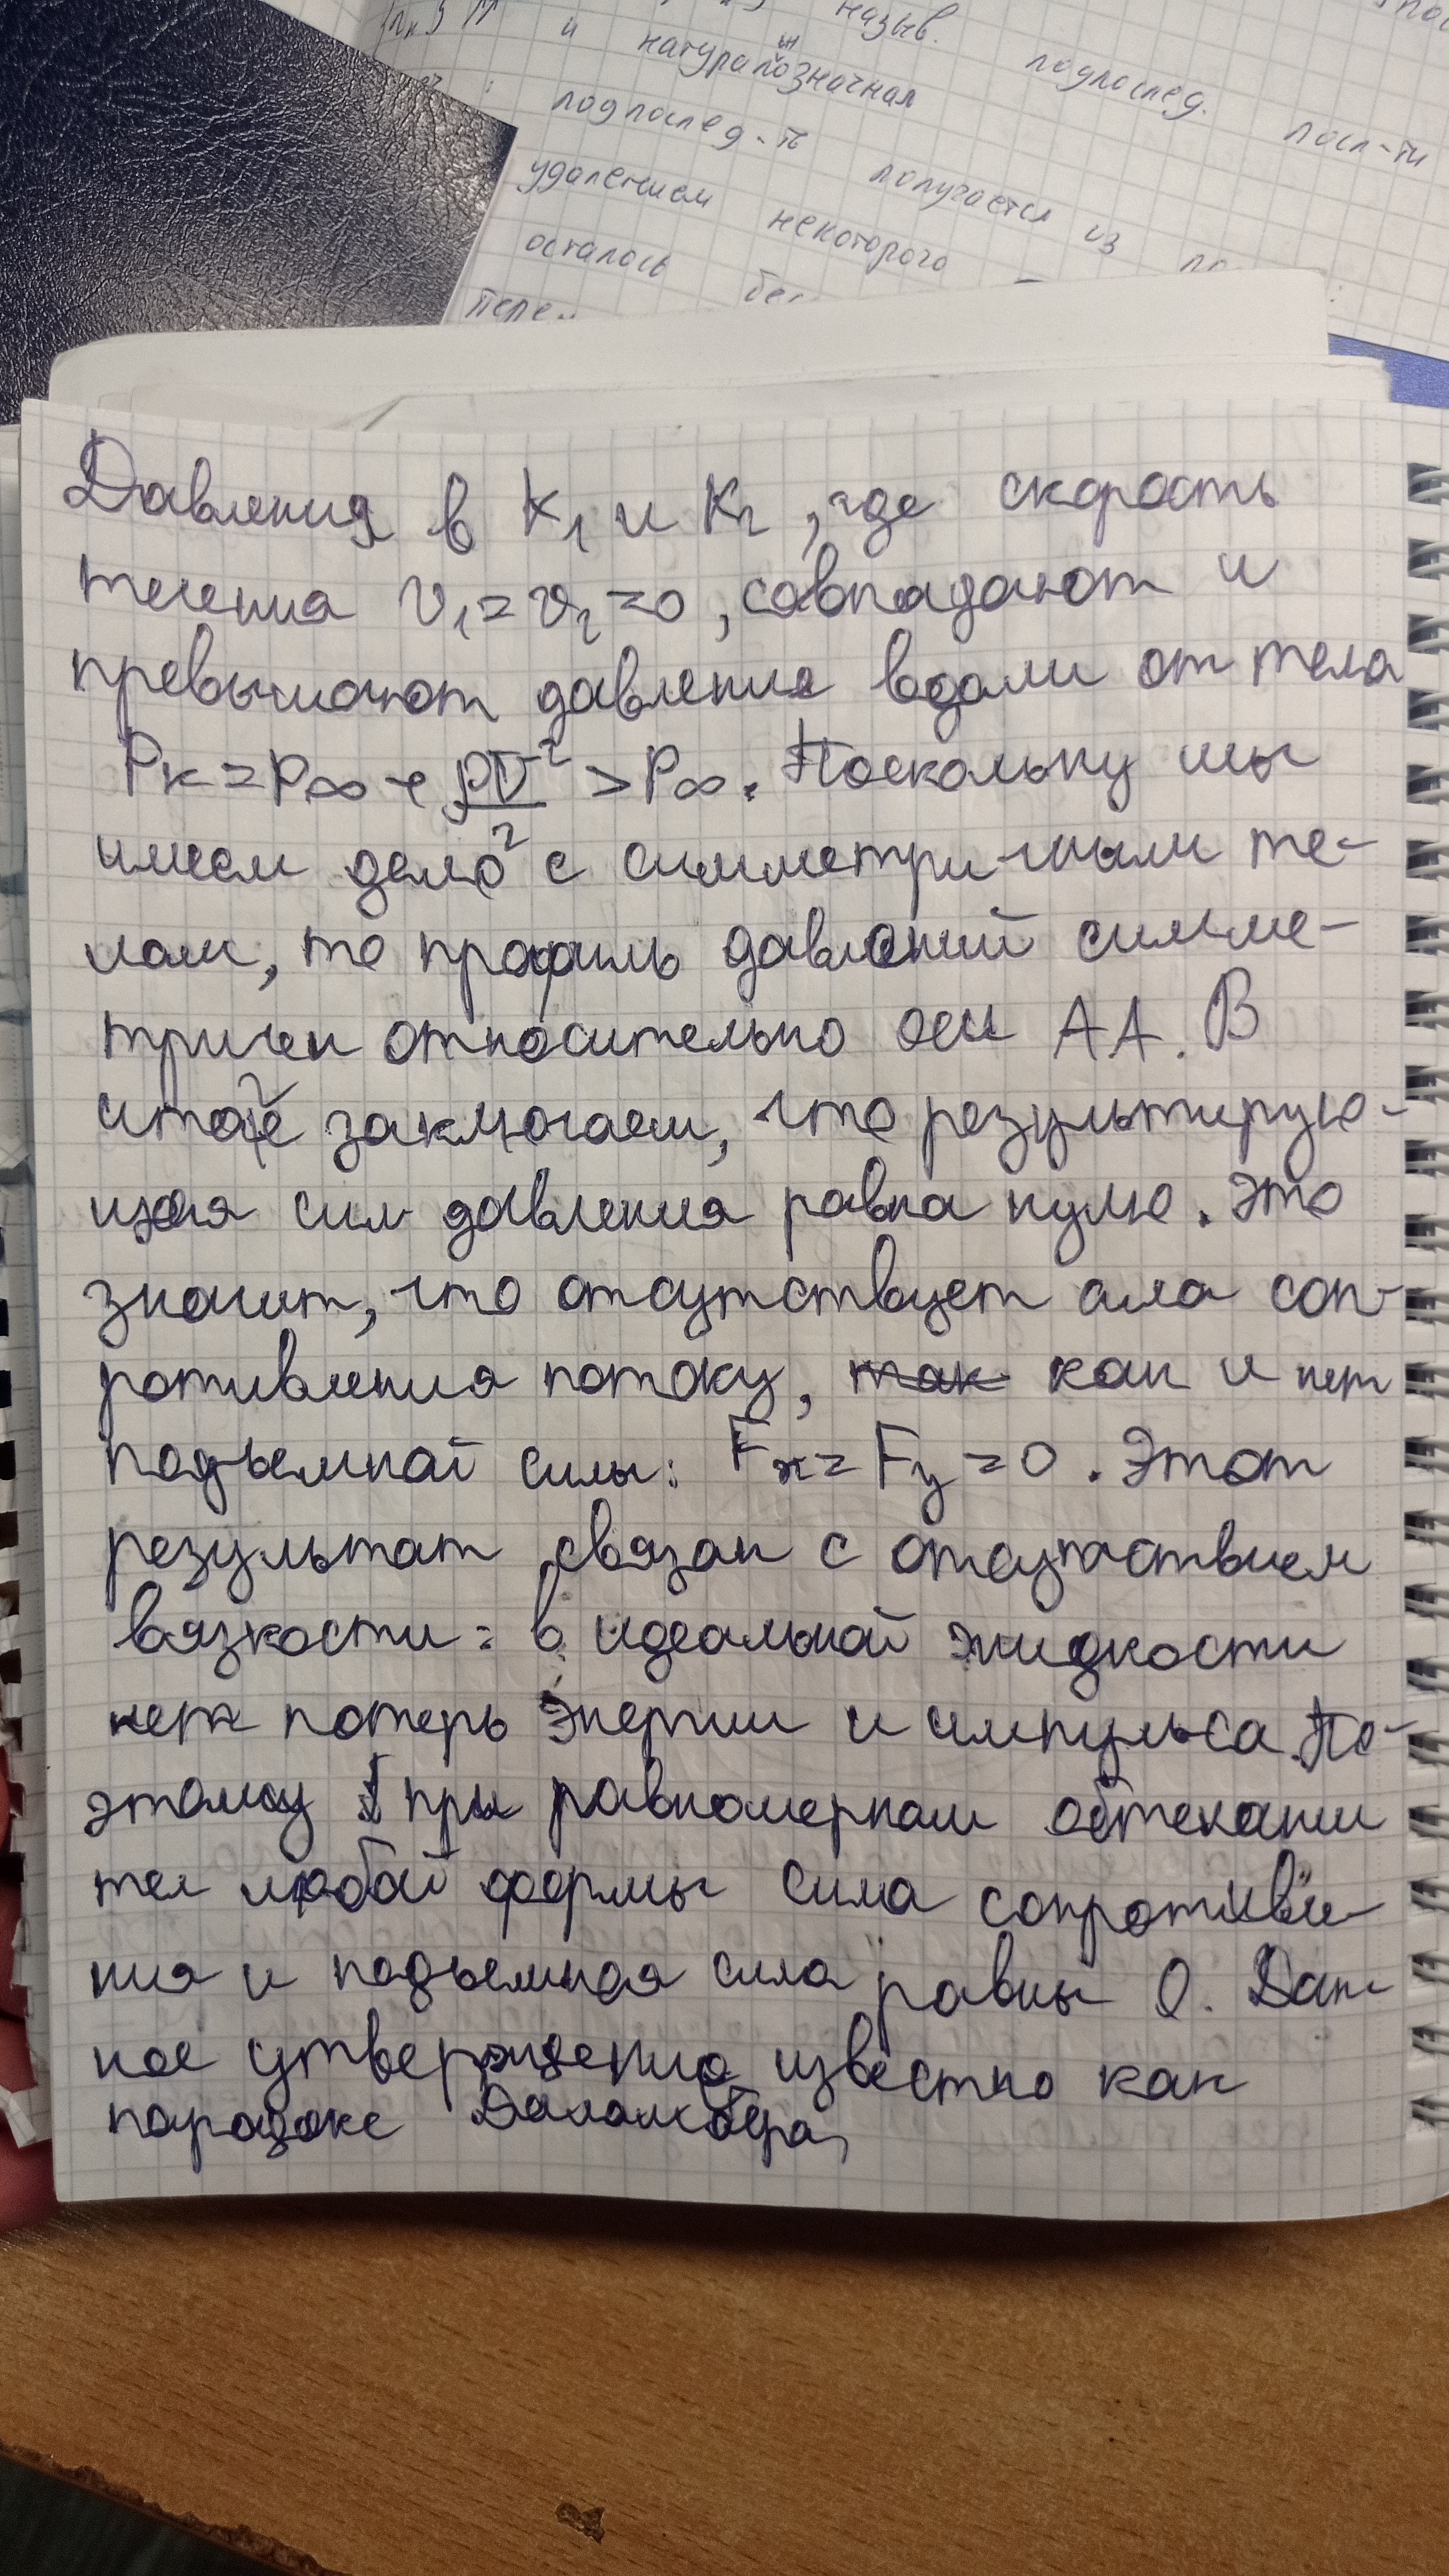 назыв. подпослед. посл-ти
и натуральнозначная
подпослед-ть получается из
удалением некоторого
осталось
Давления в K₁ и K₂, где скорость
течения v₁=v₂=0, совпадают и
превышают давления вдали от тела
Pк=P∞+ρV²/2>P∞. Поскольку мы
имеем дело с симметричным те-
лом, то профиль давлений симме-
тричен относительно оси АА. В
итоге заключаем, что результирую-
щая сил давления равна нулю. Это
значит, что отсутствует сила соп-
ротивления потоку, так как и нет
подъемной силы: Fx=Fy=0. Этот
результат связан с отсутствием
вязкости: в идеальной жидкости
нет потерь энергии и импульса. По-
этому при равномерном обтекании
тел любой формы сила сопротивле-
ния и подъемная сила равны 0. Дан-
ное утверждение известно как
парадокс Даламбера,